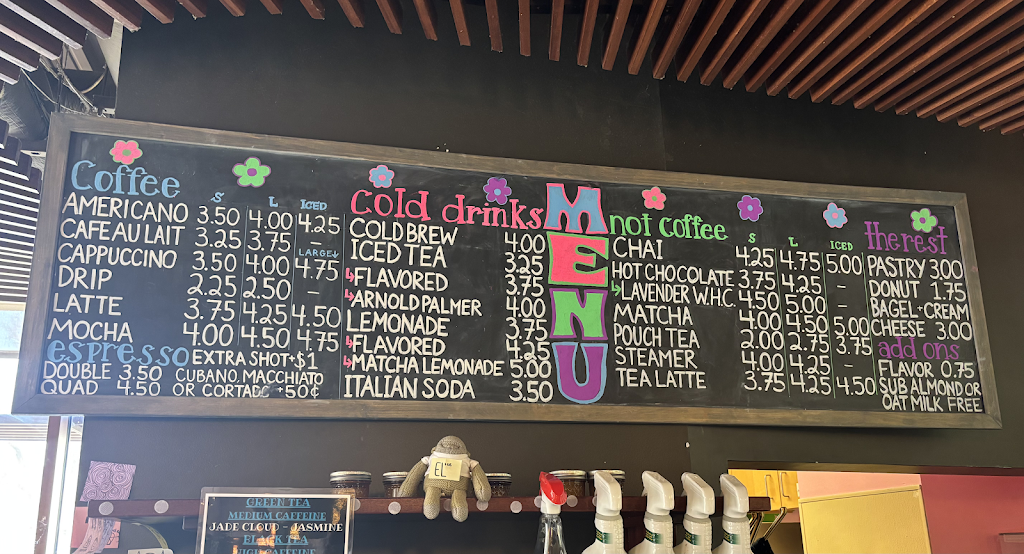 MENU
Coffee S L ICED
AMERICANO 3.50 4.00 4.25
CAFE AU LAIT 3.25 3.75 –
LARGE↓
CAPPUCCINO 3.50 4.00 4.75
DRIP 2.25 2.50 –
LATTE 3.75 4.25 4.50
MOCHA 4.00 4.50 4.75
espresso EXTRA SHOT+$1
DOUBLE 3.50 CUBANO, MACCHIATO
QUAD 4.50 OR CORTADO +50¢
Cold drinks
COLD BREW 4.00
ICED TEA 3.25
↳FLAVORED 3.75
↳ARNOLD PALMER 4.00
LEMONADE 3.75
↳FLAVORED 4.25
↳MATCHA LEMONADE 5.00
ITALIAN SODA 3.50
not coffee S L ICED
CHAI 4.25 4.75 5.00
HOT CHOCOLATE 3.75 4.25 –
↳LAVENDER W.H.C. 4.50 5.00 –
MATCHA 4.00 4.50 5.00
POUCH TEA 2.00 2.75 3.75
STEAMER 4.00 4.25 –
TEA LATTE 3.75 4.25 4.50
the rest
PASTRY 3.00
DONUT 1.75
BAGEL + CREAM
CHEESE 3.00
add ons
FLAVOR 0.75
SUB ALMOND OR
OAT MILK FREE
GREEN TEA
MEDIUM CAFFEINE
JADE CLOUD - JASMINE
BLACK TEA
HIGH CAFFEINE